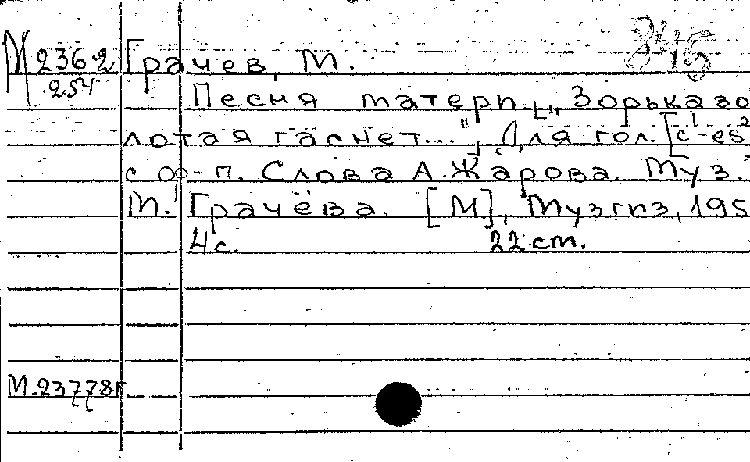 М 236-2 Грачев, М.
254
Песня матери. [„Зорька зо
лотая гаснет..."] Для гол. [c¹-es²]
с ф-п. Слова А. Жарова. Муз.
М. Грачёва. [М], Музгиз, 195
4с. 22 cm.
М.23778г